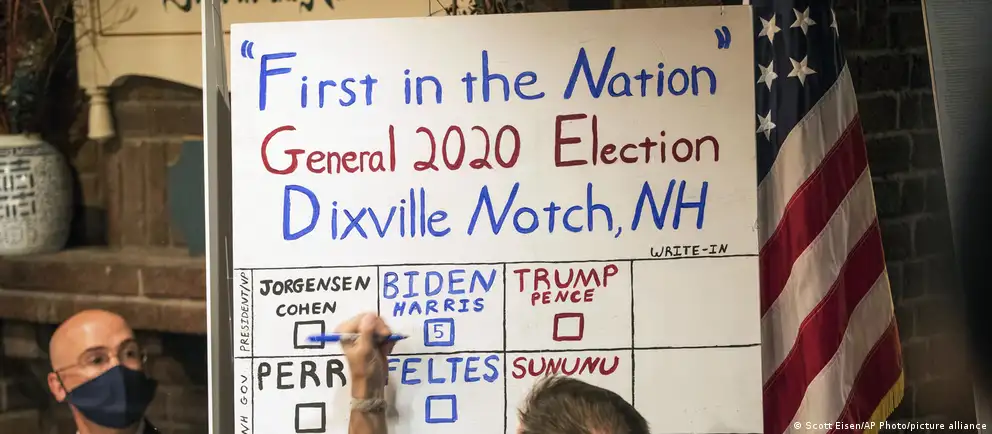 "First in the Nation"
General 2020 Election
Dixville Notch, NH
WRITE-IN
PRESIDENT/VP
JORGENSEN
COHEN
BIDEN
HARRIS
5
TRUMP
PENCE
NH GOV
PERR
FELTES
SUNUNU
© Scott Eisen/AP Photo/picture alliance